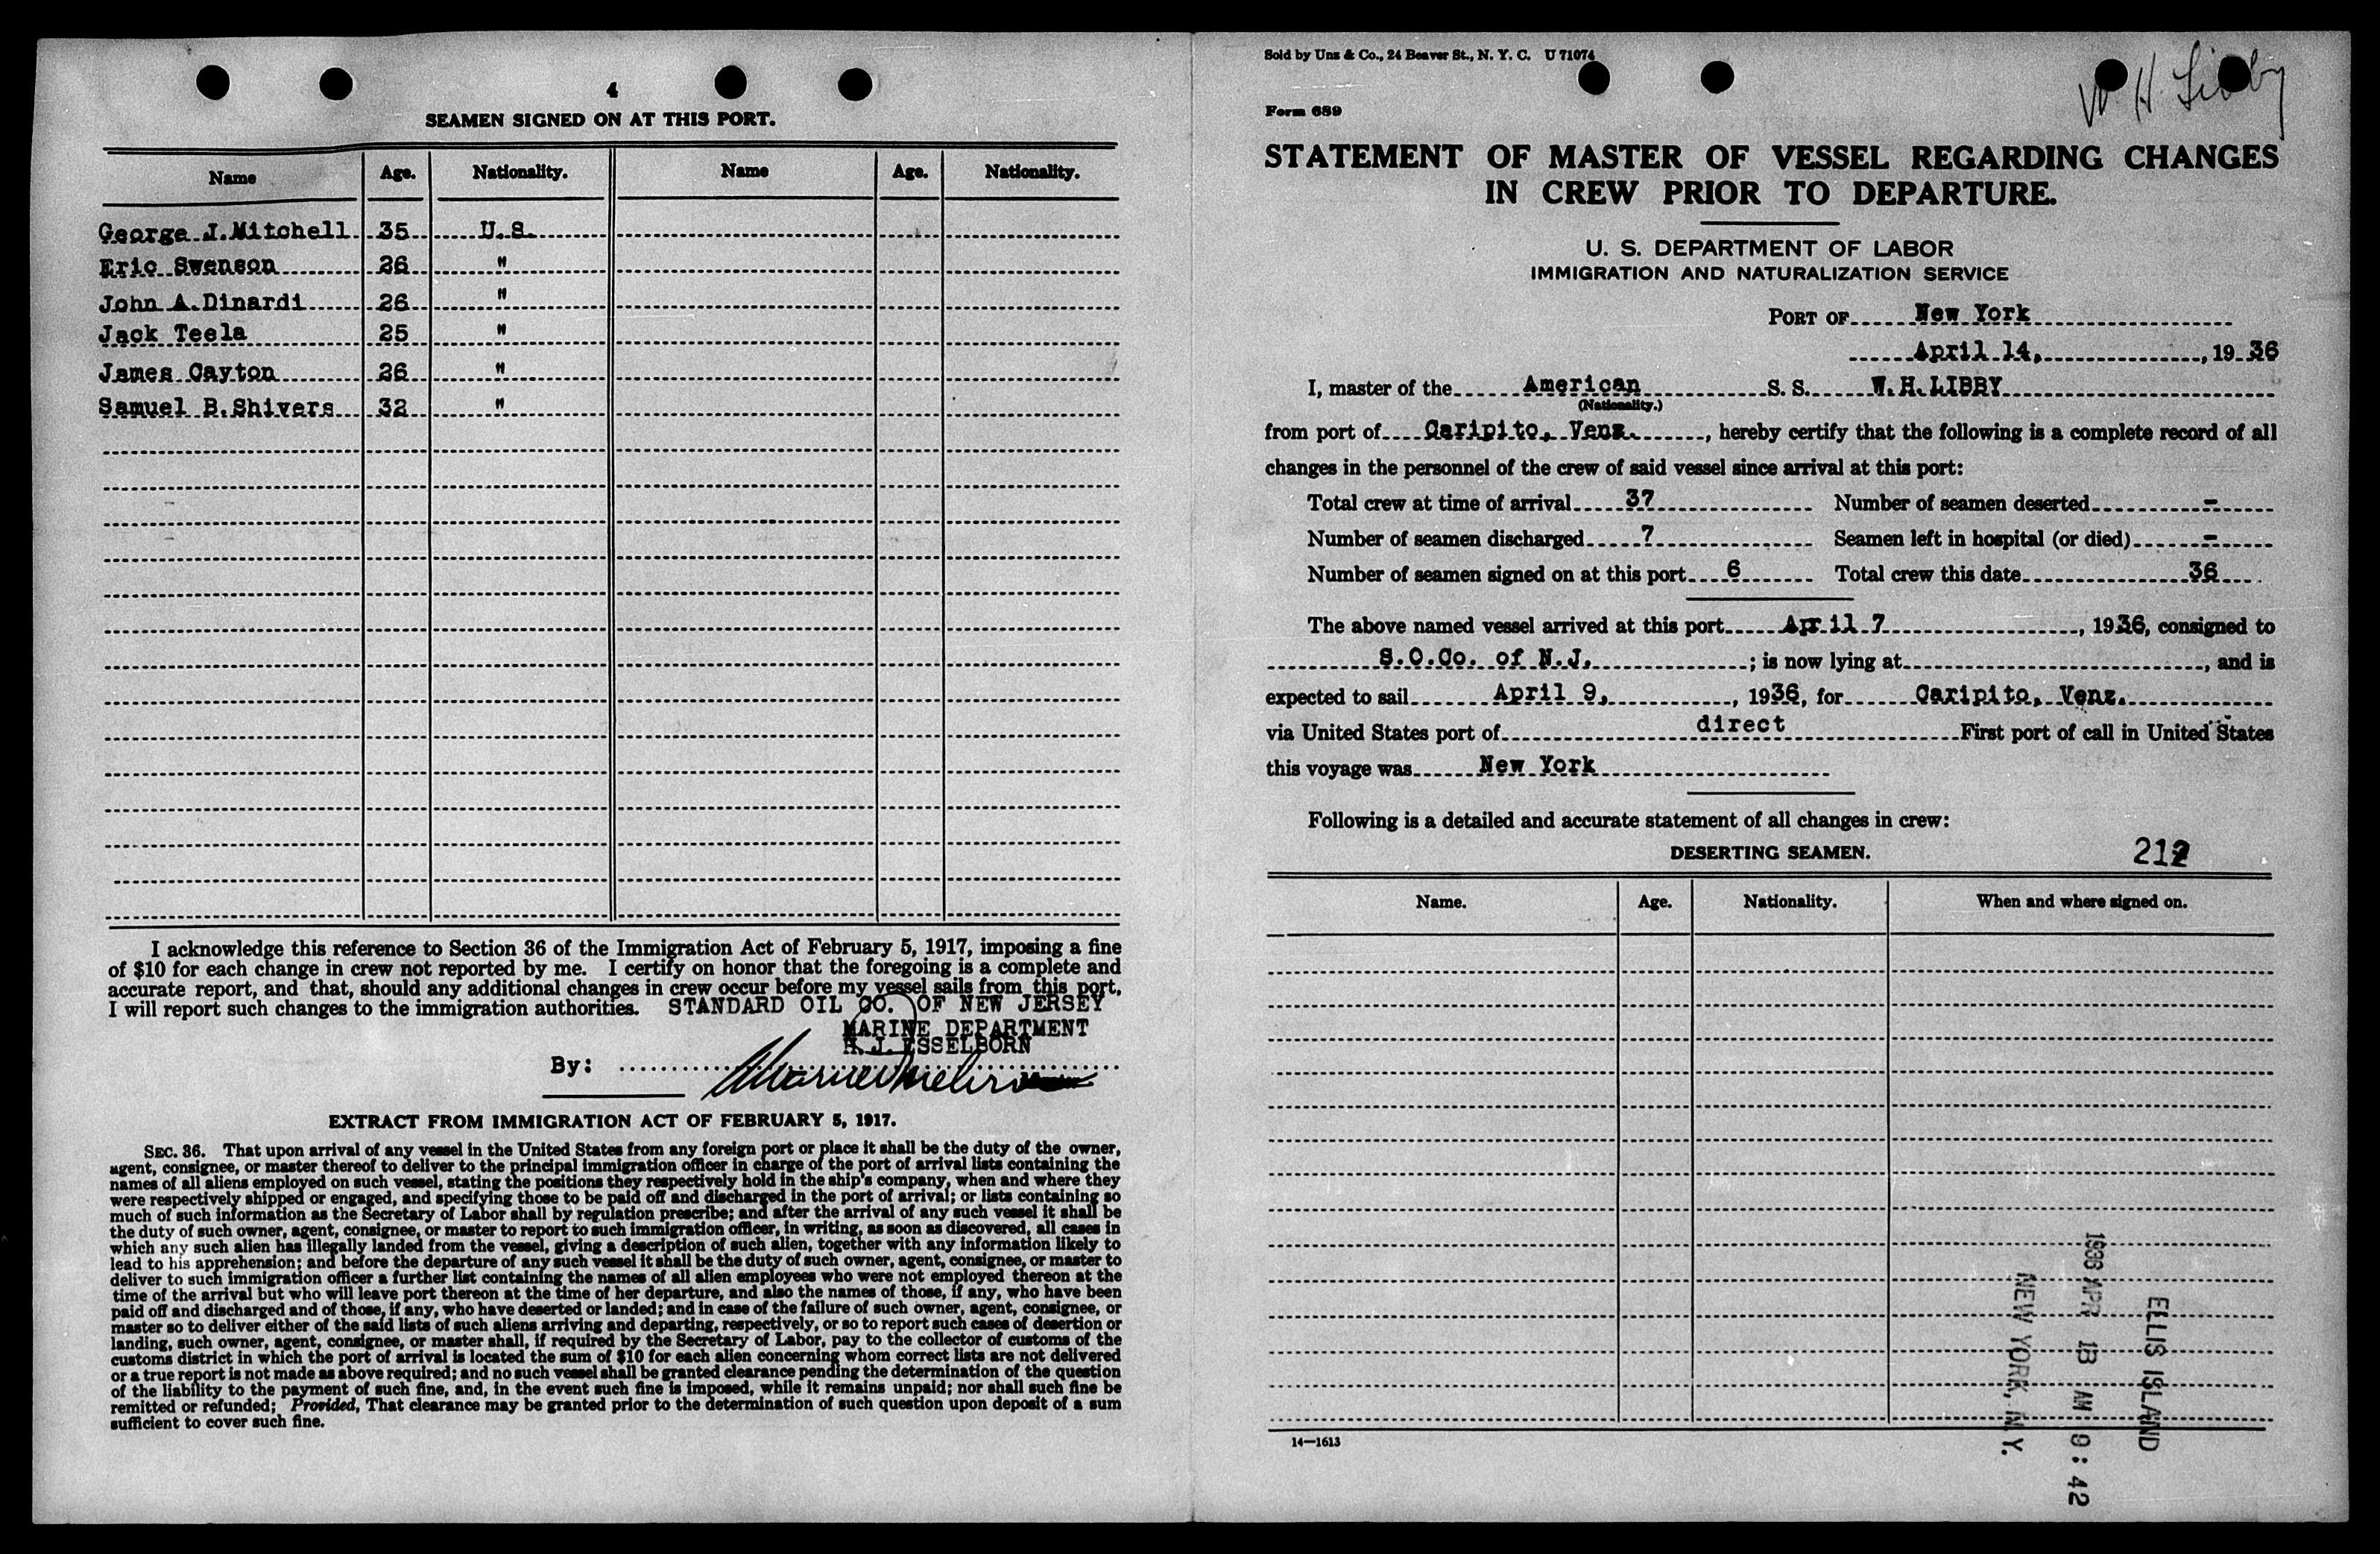 4
SEAMEN SIGNED ON AT THIS PORT.
Name Age. Nationality. Name Age. Nationality.
George J. Mitchell 35 U. S.
Eric Swenson 26 "
John A. Dinardi 26 "
Jack Teela 25 "
James Cayton 26 "
Samuel B. Shivers 32 "
I acknowledge this reference to Section 36 of the Immigration Act of February 5, 1917, imposing a fine
of $10 for each change in crew not reported by me. I certify on honor that the foregoing is a complete and
accurate report, and that, should any additional changes in crew occur before my vessel sails from this port,
I will report such changes to the immigration authorities. STANDARD OIL CO. OF NEW JERSEY
MARINE DEPARTMENT
H. J. ESSELBORN
By:
EXTRACT FROM IMMIGRATION ACT OF FEBRUARY 5, 1917.
SEC. 36. That upon arrival of any vessel in the United States from any foreign port or place it shall be the duty of the owner,
agent, consignee, or master thereof to deliver to the principal immigration officer in charge of the port of arrival lists containing the
names of all aliens employed on such vessel, stating the positions they respectively hold in the ship's company, when and where they
were respectively shipped or engaged, and specifying those to be paid off and discharged in the port of arrival; or lists containing so
much of such information as the Secretary of Labor shall by regulation prescribe; and after the arrival of any such vessel it shall be
the duty of such owner, agent, consignee, or master to report to such immigration officer, in writing, as soon as discovered, all cases in
which any such alien has illegally landed from the vessel, giving a description of such alien, together with any information likely to
lead to his apprehension; and before the departure of any such vessel it shall be the duty of such owner, agent, consignee, or master to
deliver to such immigration officer a further list containing the names of all alien employees who were not employed thereon at the
time of the arrival but who will leave port thereon at the time of her departure, and also the names of those, if any, who have been
paid off and discharged and of those, if any, who have deserted or landed; and in case of the failure of such owner, agent, consignee, or
master so to deliver either of the said lists of such aliens arriving and departing, respectively, or so to report such cases of desertion or
landing, such owner, agent, consignee, or master shall, if required by the Secretary of Labor, pay to the collector of customs of the
customs district in which the port of arrival is located the sum of $10 for each alien concerning whom correct lists are not delivered
or a true report is not made as above required; and no such vessel shall be granted clearance pending the determination of the question
of the liability to the payment of such fine, and, in the event such fine is imposed, while it remains unpaid; nor shall such fine be
remitted or refunded; Provided, That clearance may be granted prior to the determination of such question upon deposit of a sum
sufficient to cover such fine.
Sold by Unz & Co., 24 Beaver St., N. Y. C. U 71074
W H Libby
Form 689
STATEMENT OF MASTER OF VESSEL REGARDING CHANGES
IN CREW PRIOR TO DEPARTURE.
U. S. DEPARTMENT OF LABOR
IMMIGRATION AND NATURALIZATION SERVICE
PORT OF New York
April 14, , 19 36
I, master of the American S. S. W. H. LIBBY
(Nationality.)
from port of Caripito, Venz. , hereby certify that the following is a complete record of all
changes in the personnel of the crew of said vessel since arrival at this port:
Total crew at time of arrival 37 Number of seamen deserted -
Number of seamen discharged 7 Seamen left in hospital (or died) -
Number of seamen signed on at this port 6 Total crew this date 36
The above named vessel arrived at this port April 7 , 1936, consigned to
S.O.Co. of N.J. ; is now lying at , and is
expected to sail April 9, , 1936, for Caripito, Venz.
via United States port of direct First port of call in United States
this voyage was New York
Following is a detailed and accurate statement of all changes in crew:
DESERTING SEAMEN.
Name. Age. Nationality. When and where signed on.
ELLIS ISLAND
1936 APR 13 AM 9:42
NEW YORK, N.Y.
14—1613